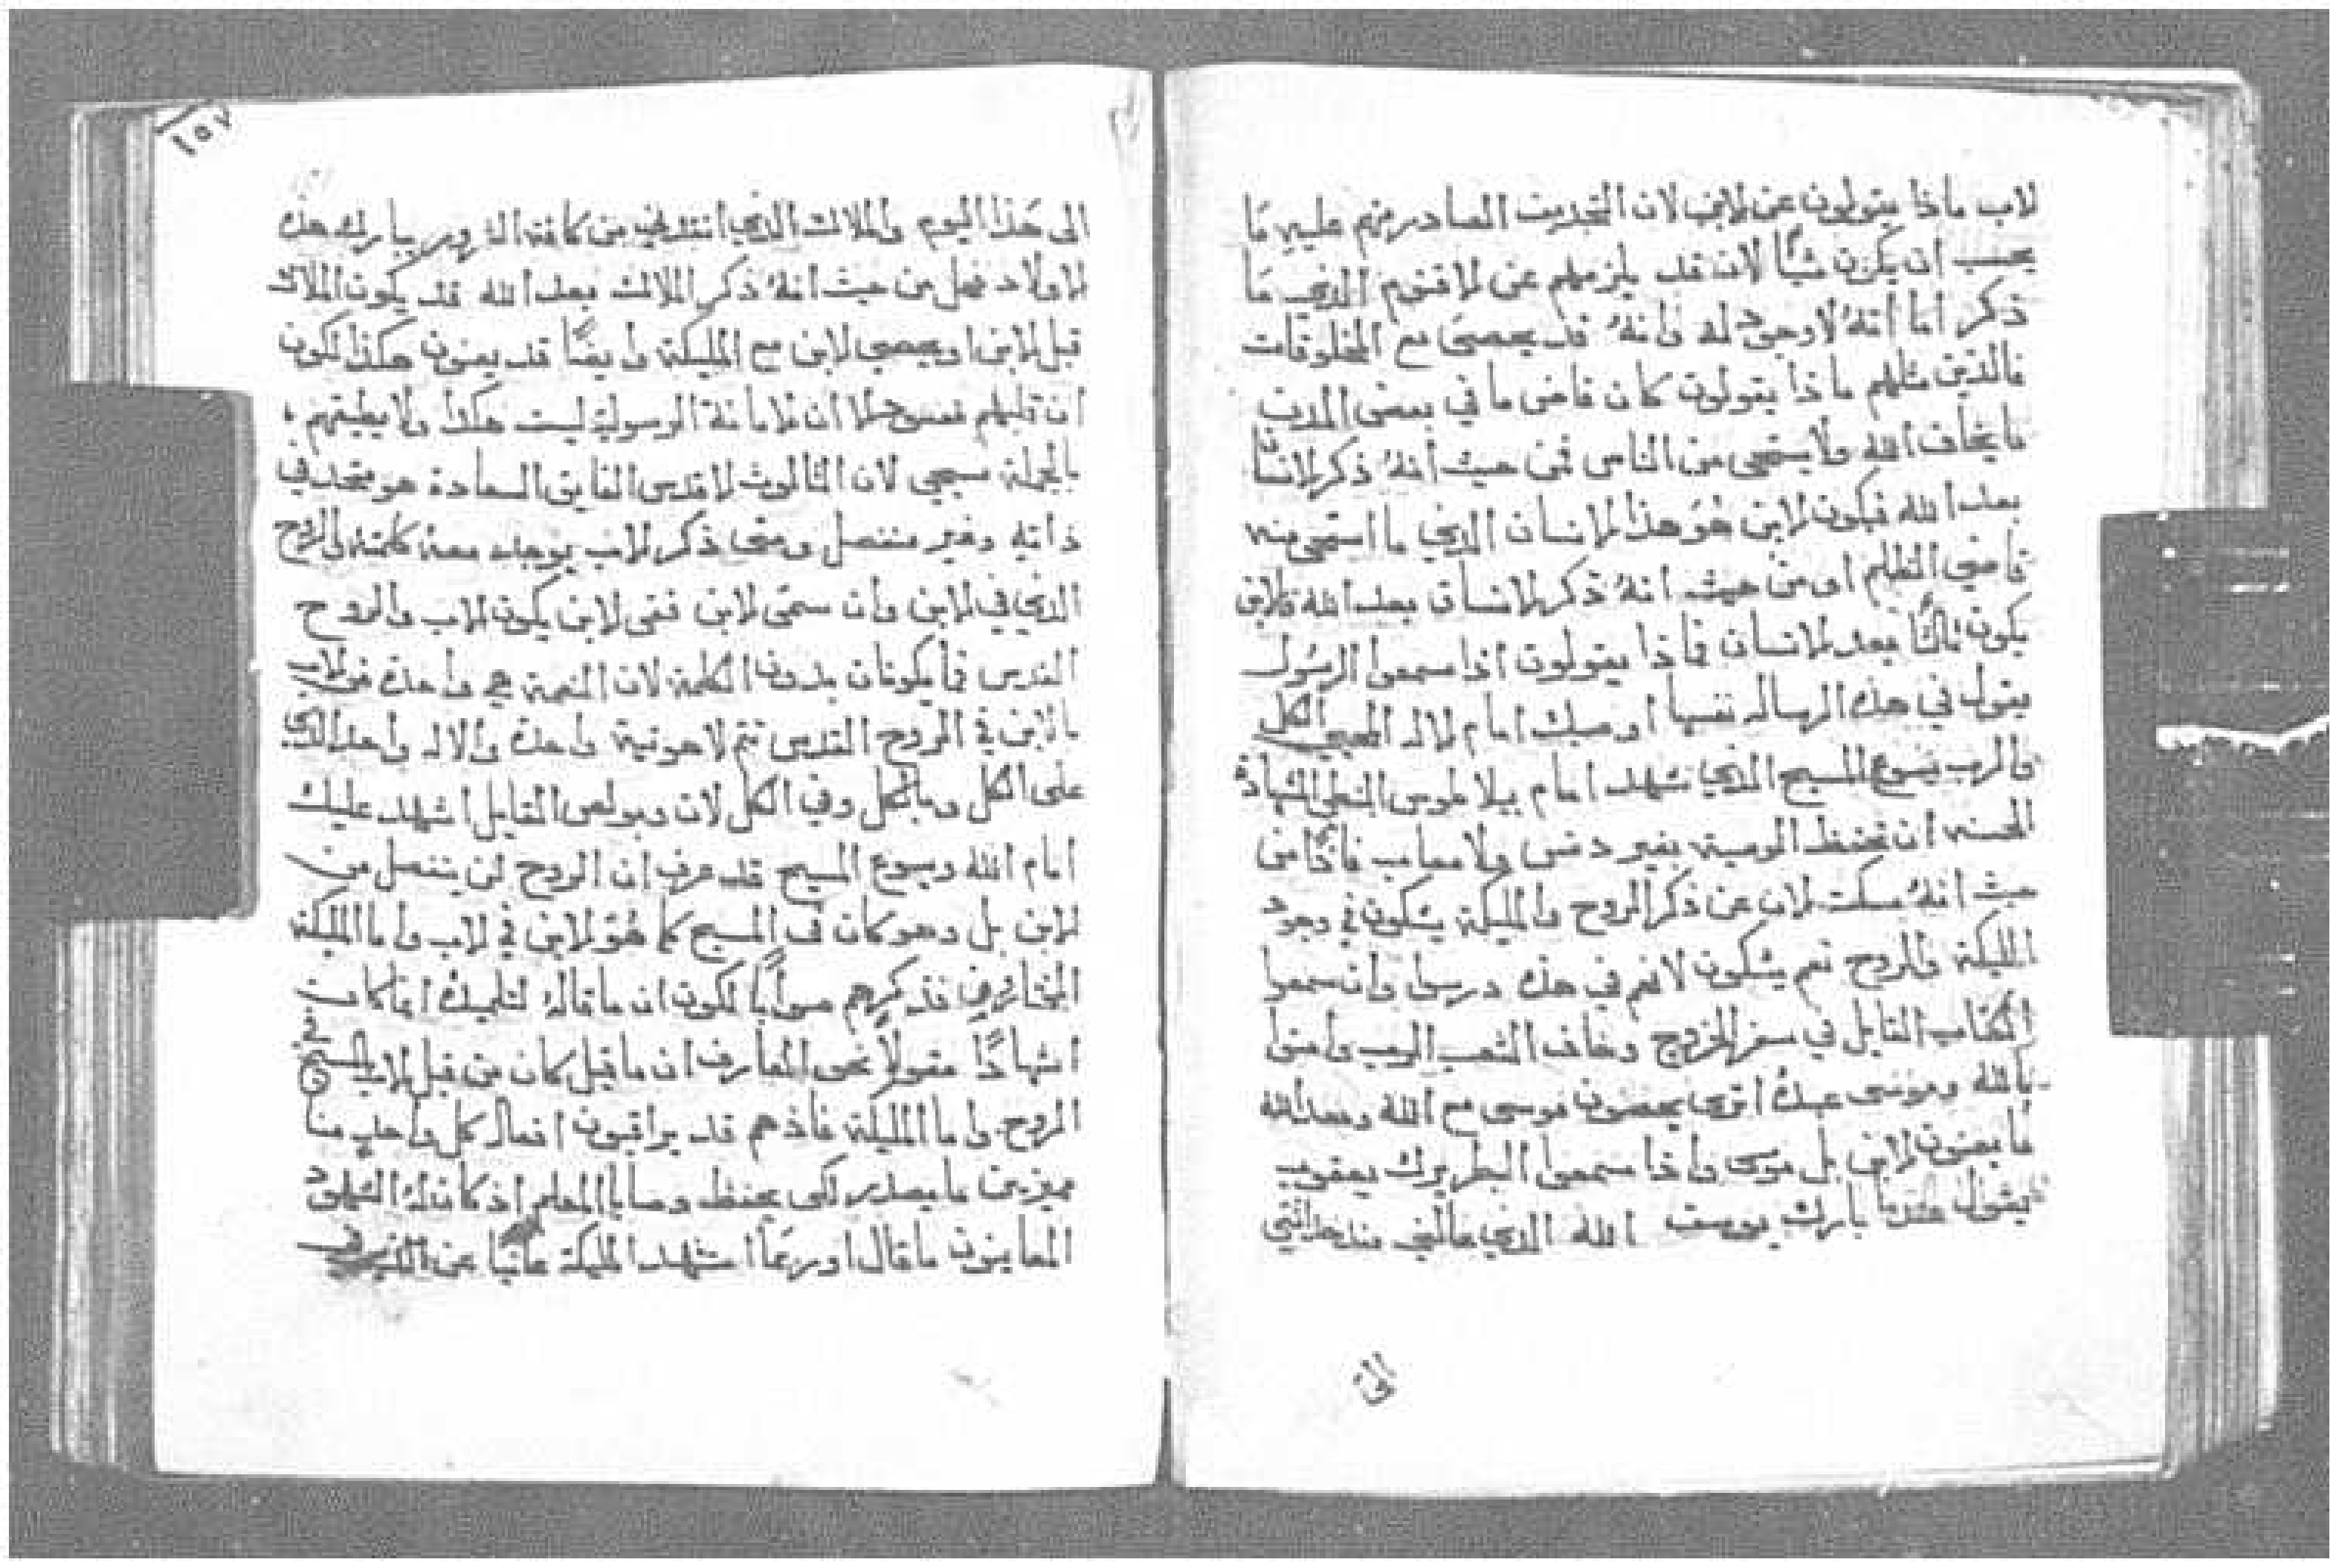 لاب ماذا يقولون عن لابن لان التجديف الصادر منهم عليه ما
يحسب ان يكون شيًا لان قد يلزمهم عن لاقنوم الذي ما
ذكر اما انهُ لا وجود له وانهُ قد يحصى مع المخلوقات
فالذين مثلهم ماذا يقولون كان قاضى ما في بعض المدن
ما يخاف الله ولا يستحى من الناس فمن حيث انهُ ذكر لانسان
بعد الله فيكون لابن هُوَ هذا لانسان الذي ما استحى منه
قاضي الظلم او من حيث انهُ ذكر لانسان بعد الله فالابن
يكون ثالثًا بعد لانسان فماذا يقولون اذا سمعوا الرسُول
يقول في هذه الرساله نفسها اوصيك امام لاله المحيي الكل
والرب يسوع المسيح الذي شهد امام بيلاطوس النبطي الشهادة
الحسنه ان تحفظ الوصية بغير دنس ولا معاب فاذًا من
حيث انهُ سكت لان عن ذكر الروح والمليكة يشكون في وجود
المليكة والروح نعم يشكون لانهم في هذه درسوا وان سمعوا
الكتاب القايل في سفر الخروج وخاف الشعب الرب وامنوا
بالله وموسى عبدهُ اترى يحصون موسى مع الله وبعد الله
ما يعنون لابن بل موسى واذا سمعوا البطريرك يعقوب
يقول عندما بارك يوسف الله الذي عالني منذ حداثتي
الى
١٥٧
الى هَذا اليوم والملاك الذي انقذني من كافة الشرور يبارك هذه
لاولاد فهل من حيث انهُ ذكر الملاك بعد الله قد يكون الملاك
قبل لابن او يحصي لابن مع المليكة وايضًا قد يعنون هكذا لكون
ان قلبهم الا ان لامانة الرسولية ليست هكذا ولا
بالجملة مسيحي لان الثالوث لاقدس الفايق السعادة هو متحد في
ذاته وغير منفصل ومتى ذكر لاب يوجد معهُ كلمته والروح
الذي في لابن وان سمّى لابن ففى لابن يكون لاب والروح
القدس فما يكونان بدون الكلمة لان النعمة هي واحدة من لاب
بالابن في الروح القدس تتم لاهوتية واحدة والاله واحد الذي
على الكل وبالكل وفي الكل لان وبولص القايل اشهد عليك
امام الله ويسوع المسيح قد عرف ان الروح لن ينفصل من
لابن بل وهو كان في المسيح كما هُوَ لابن في لاب واما المليكة
المختارين فذكرهم صوابًا لكون ان ما قاله لتلميذهُ انما كانت
اشهادًا مقولًا نحو المعارف ان ما قيل كان من قبل لاب بالمسيح في
الروح واما المليكة فاذ هم قد يراقبون افعال كل واحدٍ منا
مميزين ما يصدر لكى يحفظ وصايا المعلم اذ كانذك الشهود
المعاينون ما قال اوربمًا استشهد المليكة عانيًا عن